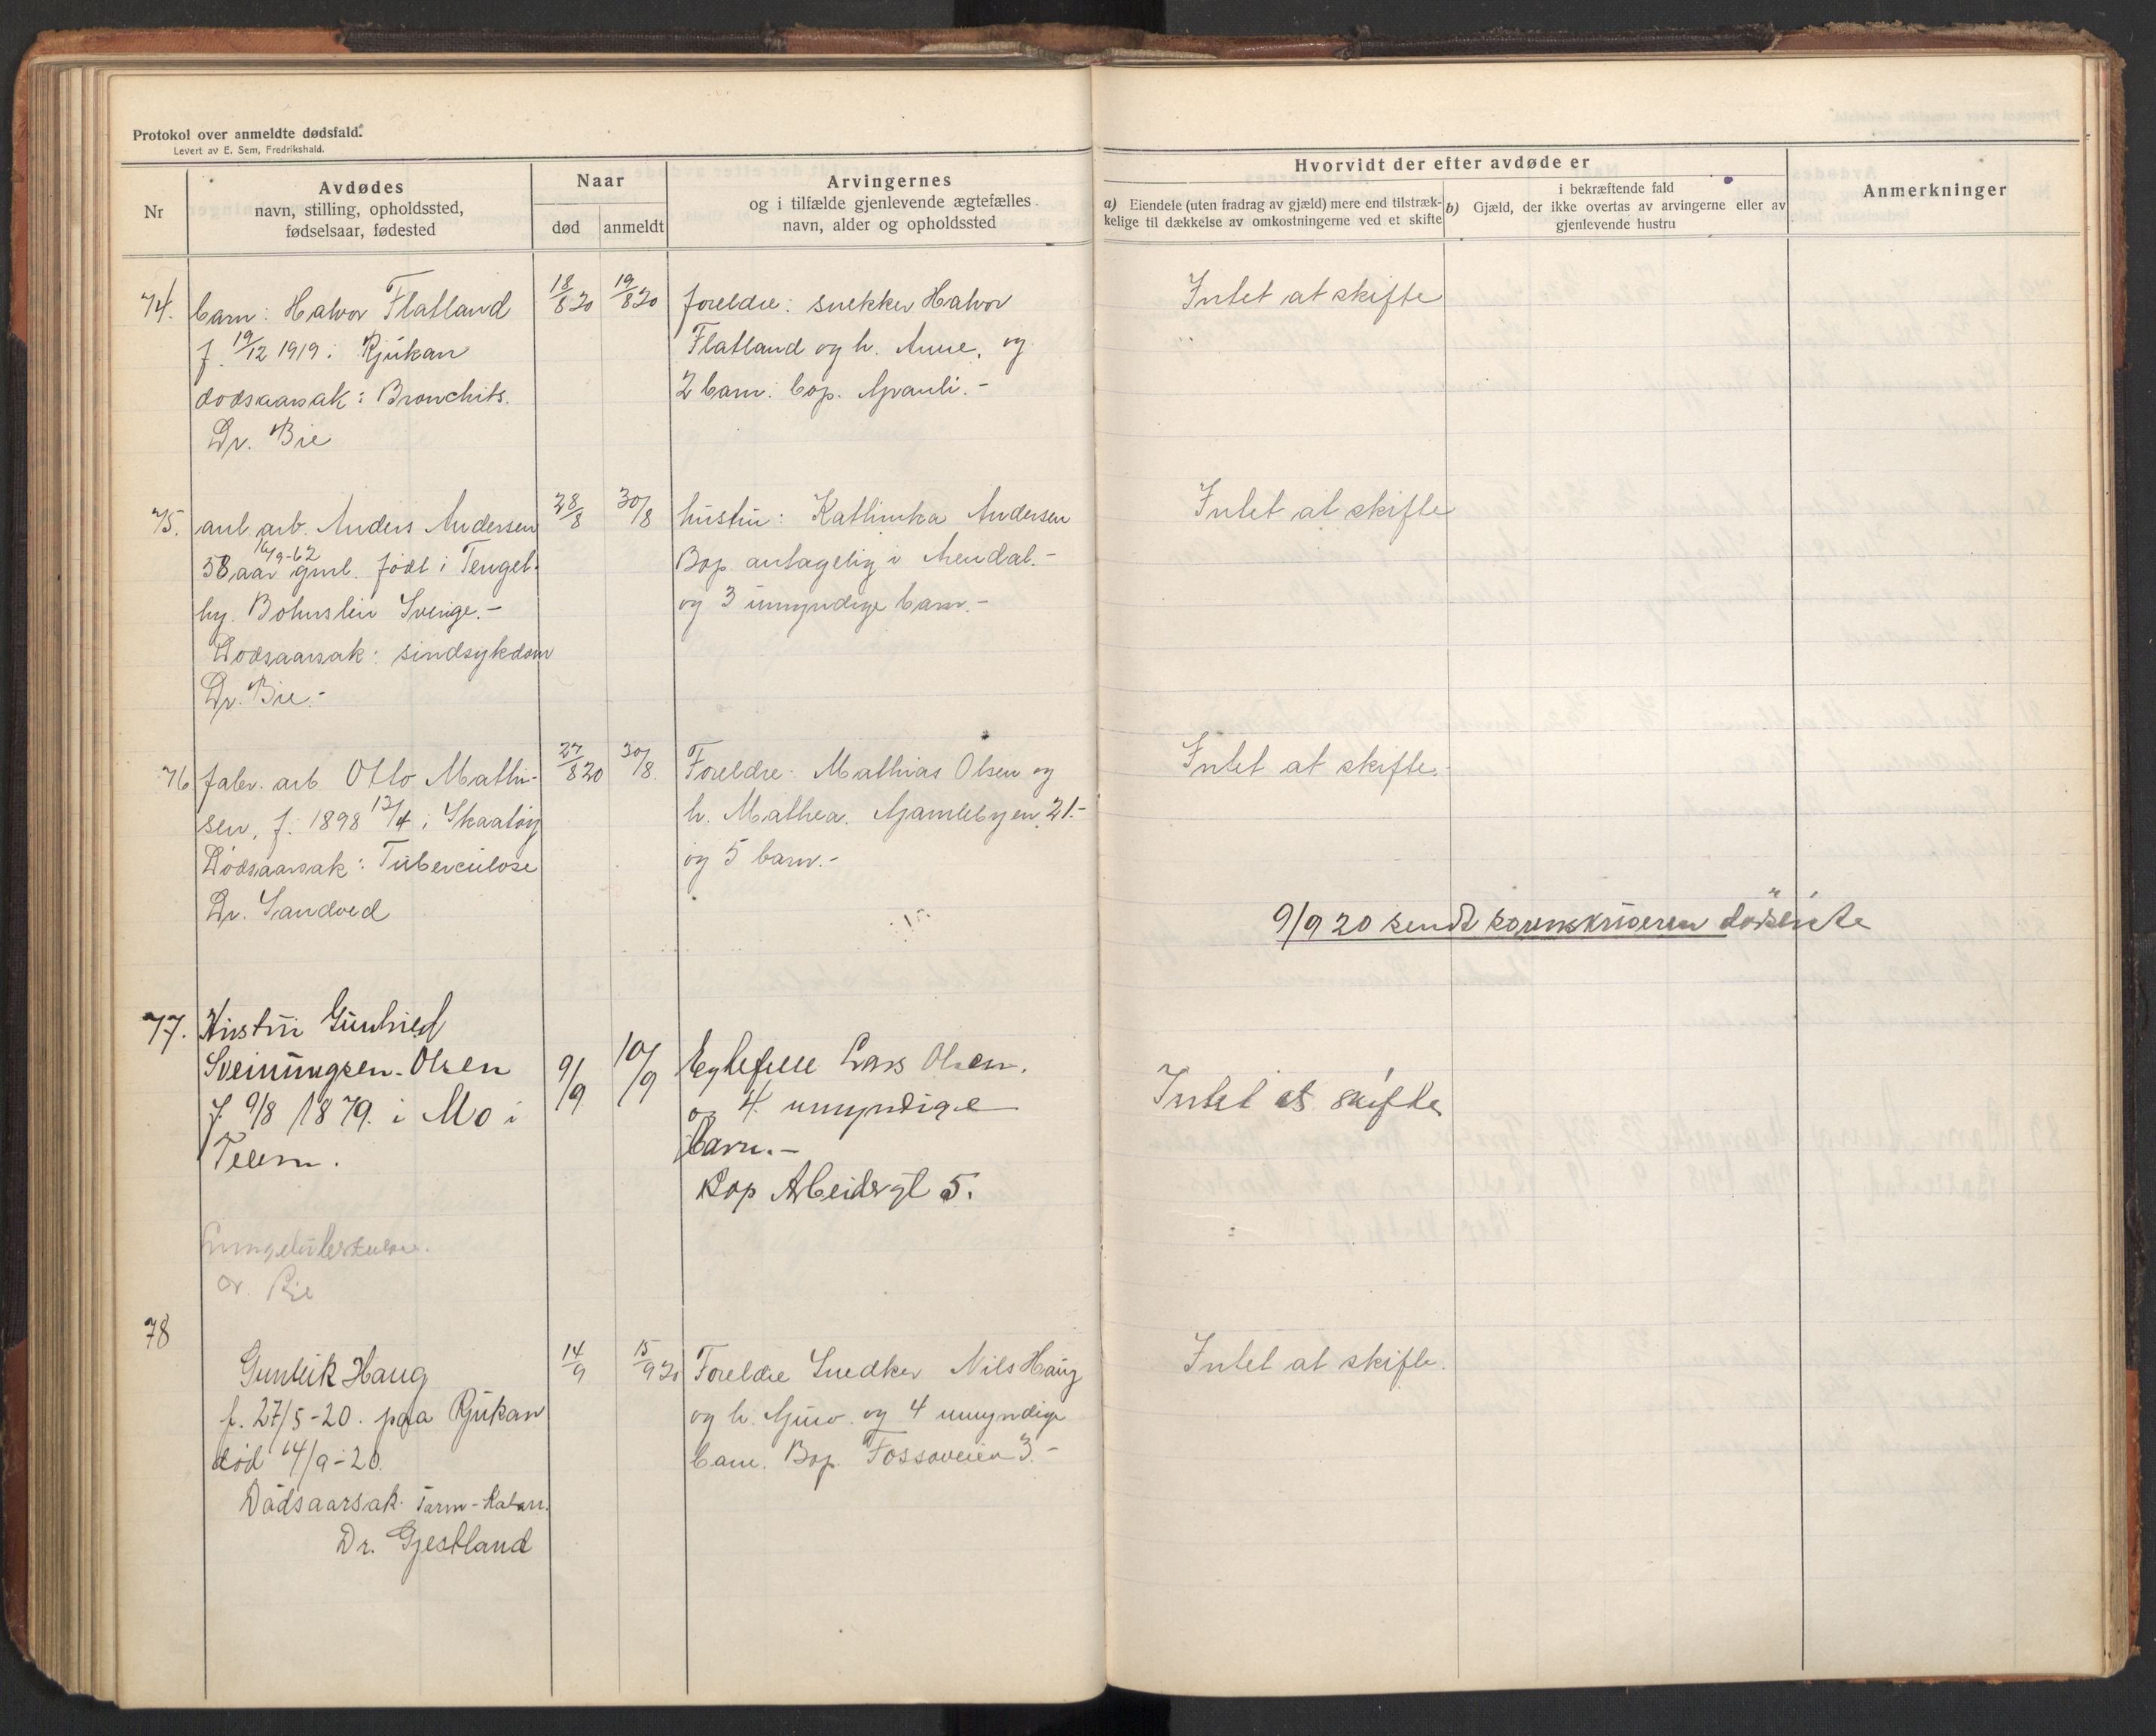 Protokol over anmeldte dødsfald.
Levert av E. Sem, Fredrikshald.
Nr
Avdødes
navn, stilling, opholdssted,
fødselsaar, fødested
Naar
død
anmeldt
Arvingernes
og i tilfælde gjenlevende ægtefælles
navn, alder og opholdssted
Hvorvidt der efter avdøde er
a) Eiendele (uten fradrag av gjæld) mere end tilstræk-
kelige til dækkelse av omkostningerne ved et skifte
i bekræftende fald
b) Gjæld, der ikke overtas av arvingerne eller av
gjenlevende hustru
Anmerkninger
74.
barn: Halvor Flatland
f. 19/12 1919 i Rjukan
dødsaarsak: Bronchits.
Dr. Bie
18/8 20
19/8 20
foreldre: snekker Halvor
Flatland og h. Anne, og
2 barn. bop.
Intet at skifte
75.
anl. arb. Anders Andersen
16/9-62
58 aar gml. født i
Sverige.-
Dødsaarsak: sindsykdom
Dr. Bie.-
28/8
30/8
hustru: Kathinka Andersen
Bop. antagelig i Arendal.-
og 3 umyndige barn.-
Intet at skifte
76
fabr. arb. Otto Mathi-
sen, f. 1898 13/4 i Skaatøy
Dødsaarsak: Tuberculose
Dr. Sandved
27/8 20
30/8.
Foreldre: Mathias Olsen og
h. Mathea. Gamlebyen 21.-
og 5 barn.-
Intet at skifte.-
9/9 20 sendt sorenskriveren dødsliste
77.
Hustru Gunhild
Sveinungsen-Olsen
f. 9/8 1879. i Mo i
Telem.
Lungetuberkulose.
Dr. Bie
9/9
10/9
Egtefelle Lars Olsen.
og 4 umyndige
barn.-
Bop Arbeidergt 5.
Intet at skifte
78
Gunleik Haug
f. 27/5-20. paa Rjukan
død 14/9-20.
Dødsaarsak. Tarm-Katarr.
Dr. Gjestland
14/9
15/9 20
Foreldre Snedker Nils Haug
og h. Gjuro. og 4 umyndige
barn. Bop. Fossoveien 3.-
Intet at skifte.